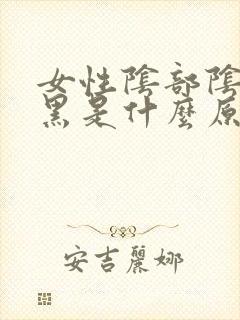 女性陰部陰
黑是什麼原
安吉麗娜